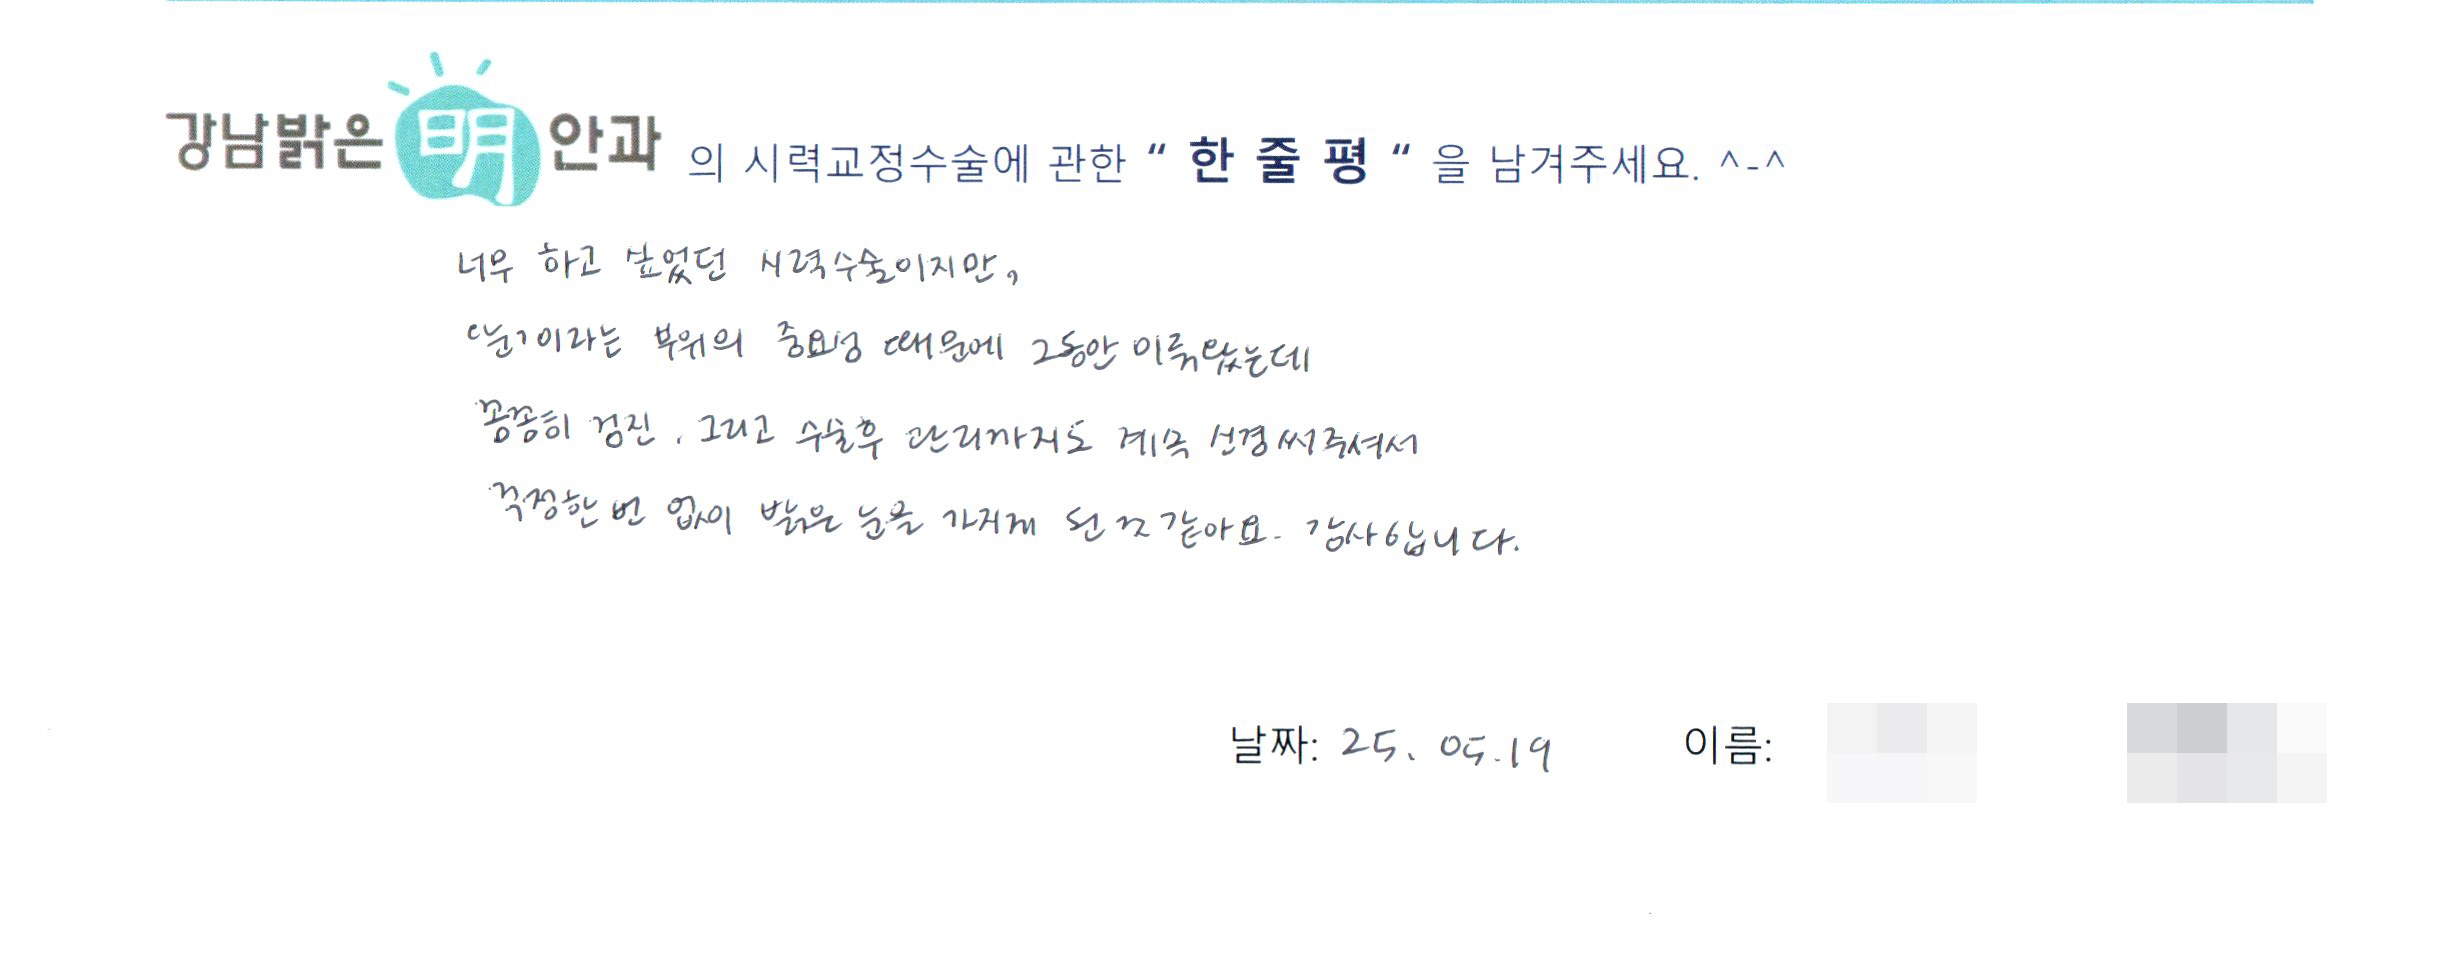 강남밝은 明 안과 의 시력교정수술에 관한 “ 한 줄 평 “ 을 남겨주세요. ^-^
너무 하고 싶었던 시력수술이지만,
'눈'이라는 부위의 중요성 때문에 그동안 미뤄왔는데
꼼꼼히 검진, 그리고 수술후 관리까지도 계속 신경써주셔서
걱정한번 없이 밝은 눈을 가지게 된 것 같아요. 감사합니다.
날짜: 25. 05. 19 이름: